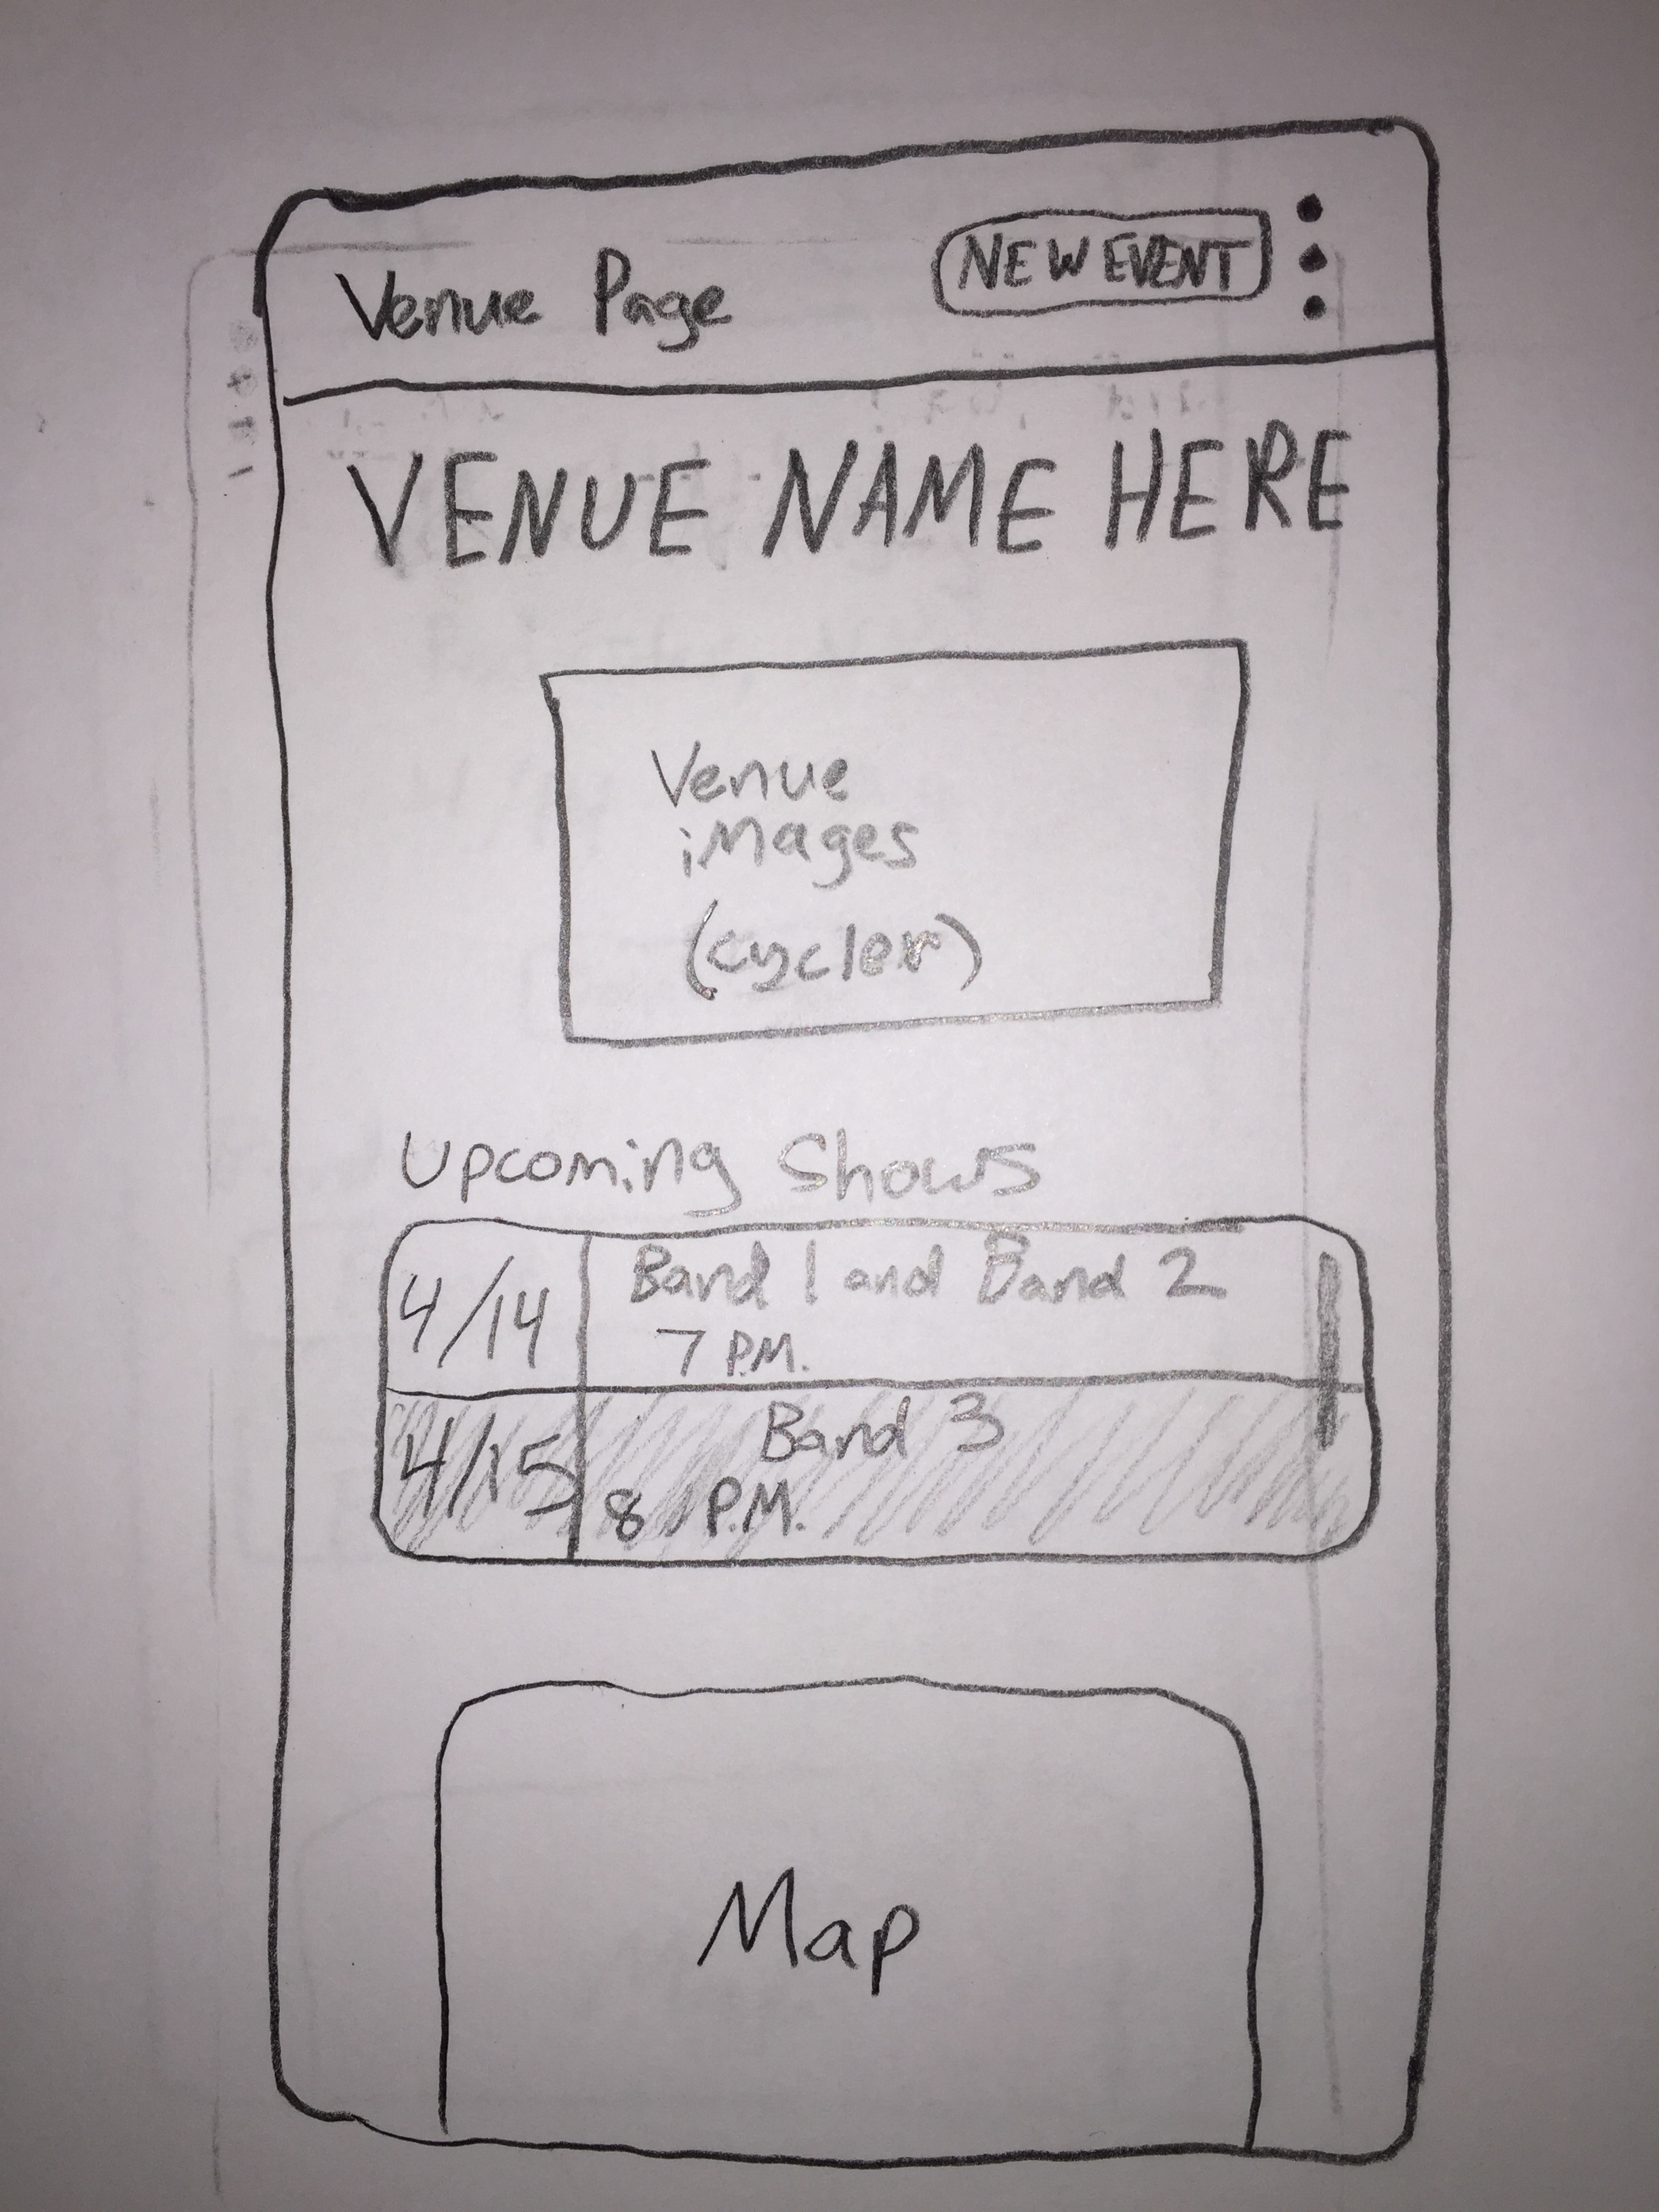 Venue Page
NEW EVENT
VENUE NAME HERE
Venue
iMages
(cycler)
Upcoming Shows
4/14
Band 1 and Band 2
7 P.M.
4/15
Band 3
8 P.M.
Map